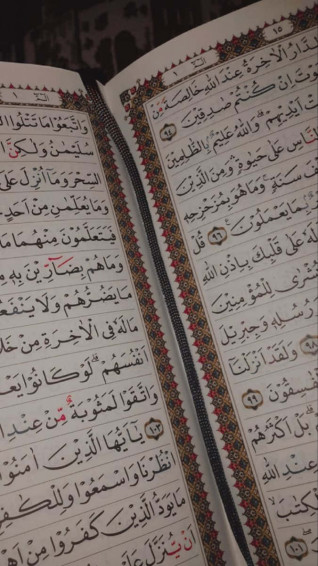 ١٥
البقرة ٢
الدَّارُ الْاٰخِرَةُ عِنْدَ اللّٰهِ خَالِصَةً مِّنْ
الْمَوْتَ اِنْ كُنْتُمْ صٰدِقِيْنَ ﴿٩٤﴾
اَيْدِيْهِمْ ۗ وَاللّٰهُ عَلِيْمٌ ۢ بِالظّٰلِمِيْنَ
النَّاسِ عَلٰى حَيٰوةٍ ۛ وَمِنَ الَّذِيْنَ
سَنَةٍ ۚ وَمَا هُوَ بِمُزَحْزِحِهٖ
بِمَا يَعْمَلُوْنَ ﴿٩٦﴾ قُلْ
عَلٰى قَلْبِكَ بِاِذْنِ اللّٰهِ
بُشْرٰى لِلْمُؤْمِنِيْنَ
وَرُسُلِهٖ وَجِبْرِيْلَ
﴿٩٨﴾ وَلَقَدْ اَنْزَلْنَآ
الْفٰسِقُوْنَ ﴿٩٩﴾
بَلْ اَكْثَرُهُمْ
عِنْدِ اللّٰهِ
الْكِتٰبَ
﴿١٠١﴾
وَاتَّبَعُوْا مَا تَتْلُوا
سُلَيْمٰنُ وَلٰكِنَّ
السِّحْرَ وَمَآ اُنْزِلَ عَلَى
وَمَا يُعَلِّمٰنِ مِنْ اَحَدٍ
فَيَتَعَلَّمُوْنَ مِنْهُمَا مَا
وَمَا هُمْ بِضَآرِّيْنَ بِهٖ مِنْ
مَا يَضُرُّهُمْ وَلَا يَنْفَعُهُمْ
مَا لَهٗ فِى الْاٰخِرَةِ مِنْ خَلَاقٍ
اَنْفُسَهُمْ ۗ لَوْ كَانُوْا يَعْلَمُوْنَ
وَاتَّقَوْا لَمَثُوْبَةٌ مِّنْ عِنْدِ اللّٰهِ
﴿١٠٣﴾ يٰٓاَيُّهَا الَّذِيْنَ اٰمَنُوْا
انْظُرْنَا وَاسْمَعُوْا وَلِلْكٰفِرِيْنَ
مَا يَوَدُّ الَّذِيْنَ كَفَرُوْا مِنْ اَهْلِ
اَنْ يُّنَزَّلَ عَلَيْكُمْ